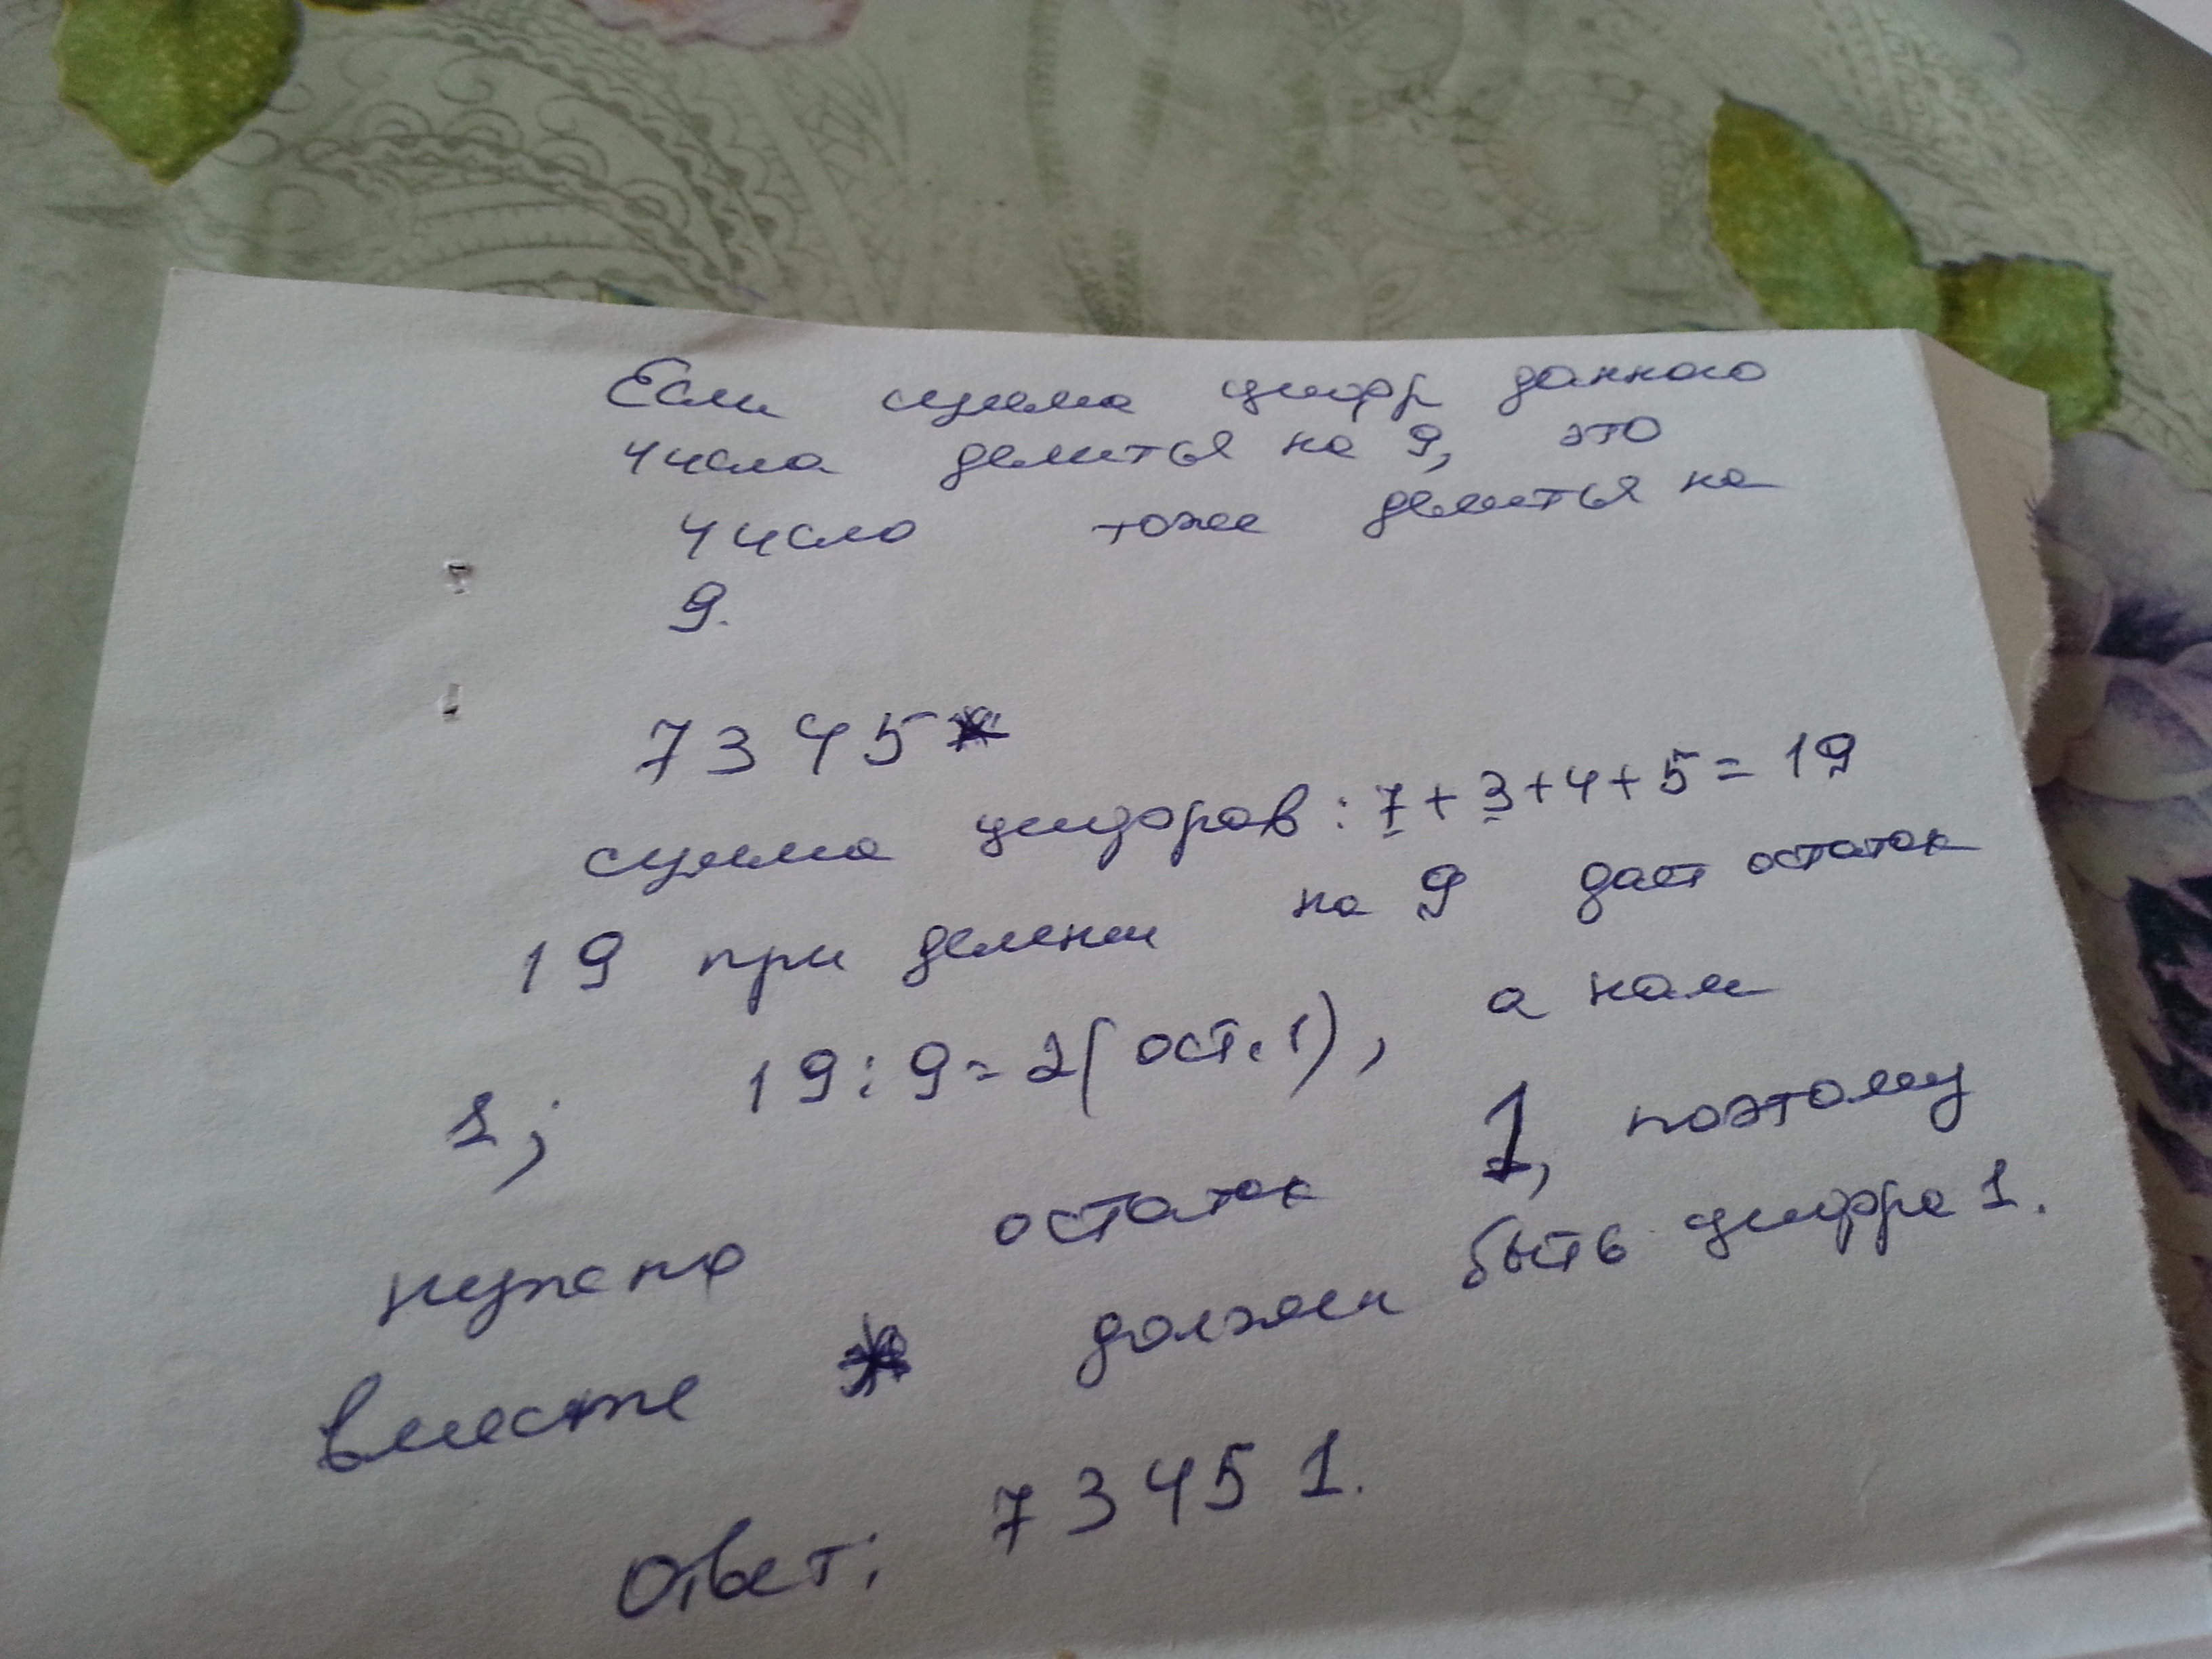 Если сумма цифр данного
числа делиться на 9, это
число тоже делиться на
9.
7345*
сумма цифоров: 7+3+4+5=19
19 при делении на 9 дает остаток
1; 19:9=2(ост.1), а нам
нужено остаток 1, поэтому
вместе * должен быть цифра 1.
Ответ: 73451.